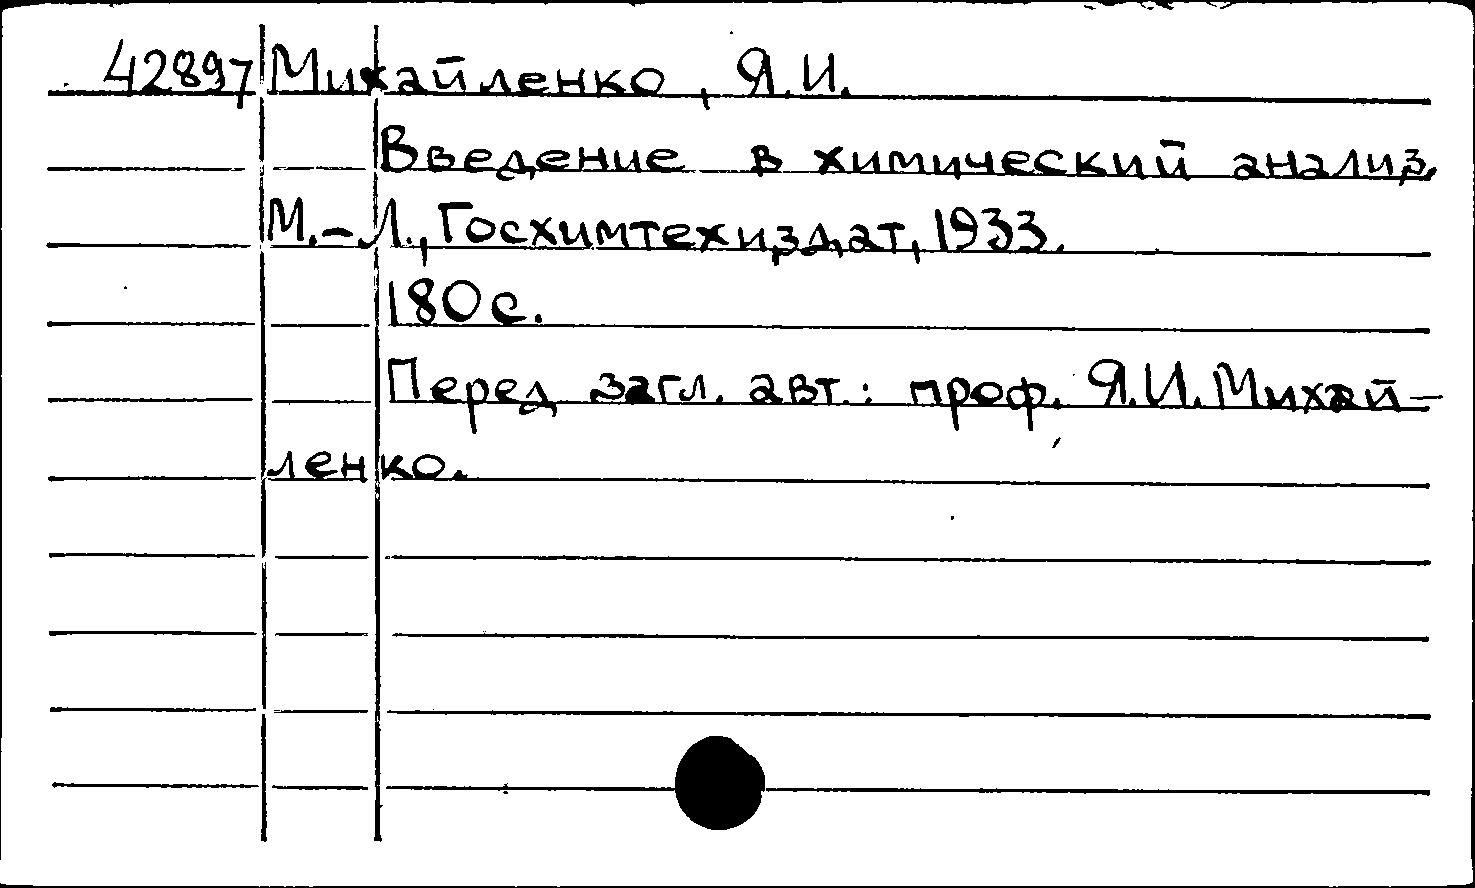 42897 Михайленко, Я.И.
Введение в химический анализ.
М.-Л., Госхимтехиздат, 1933.
180 с.
Перед загл. авт.: проф. Я.И. Михай-
ленко.